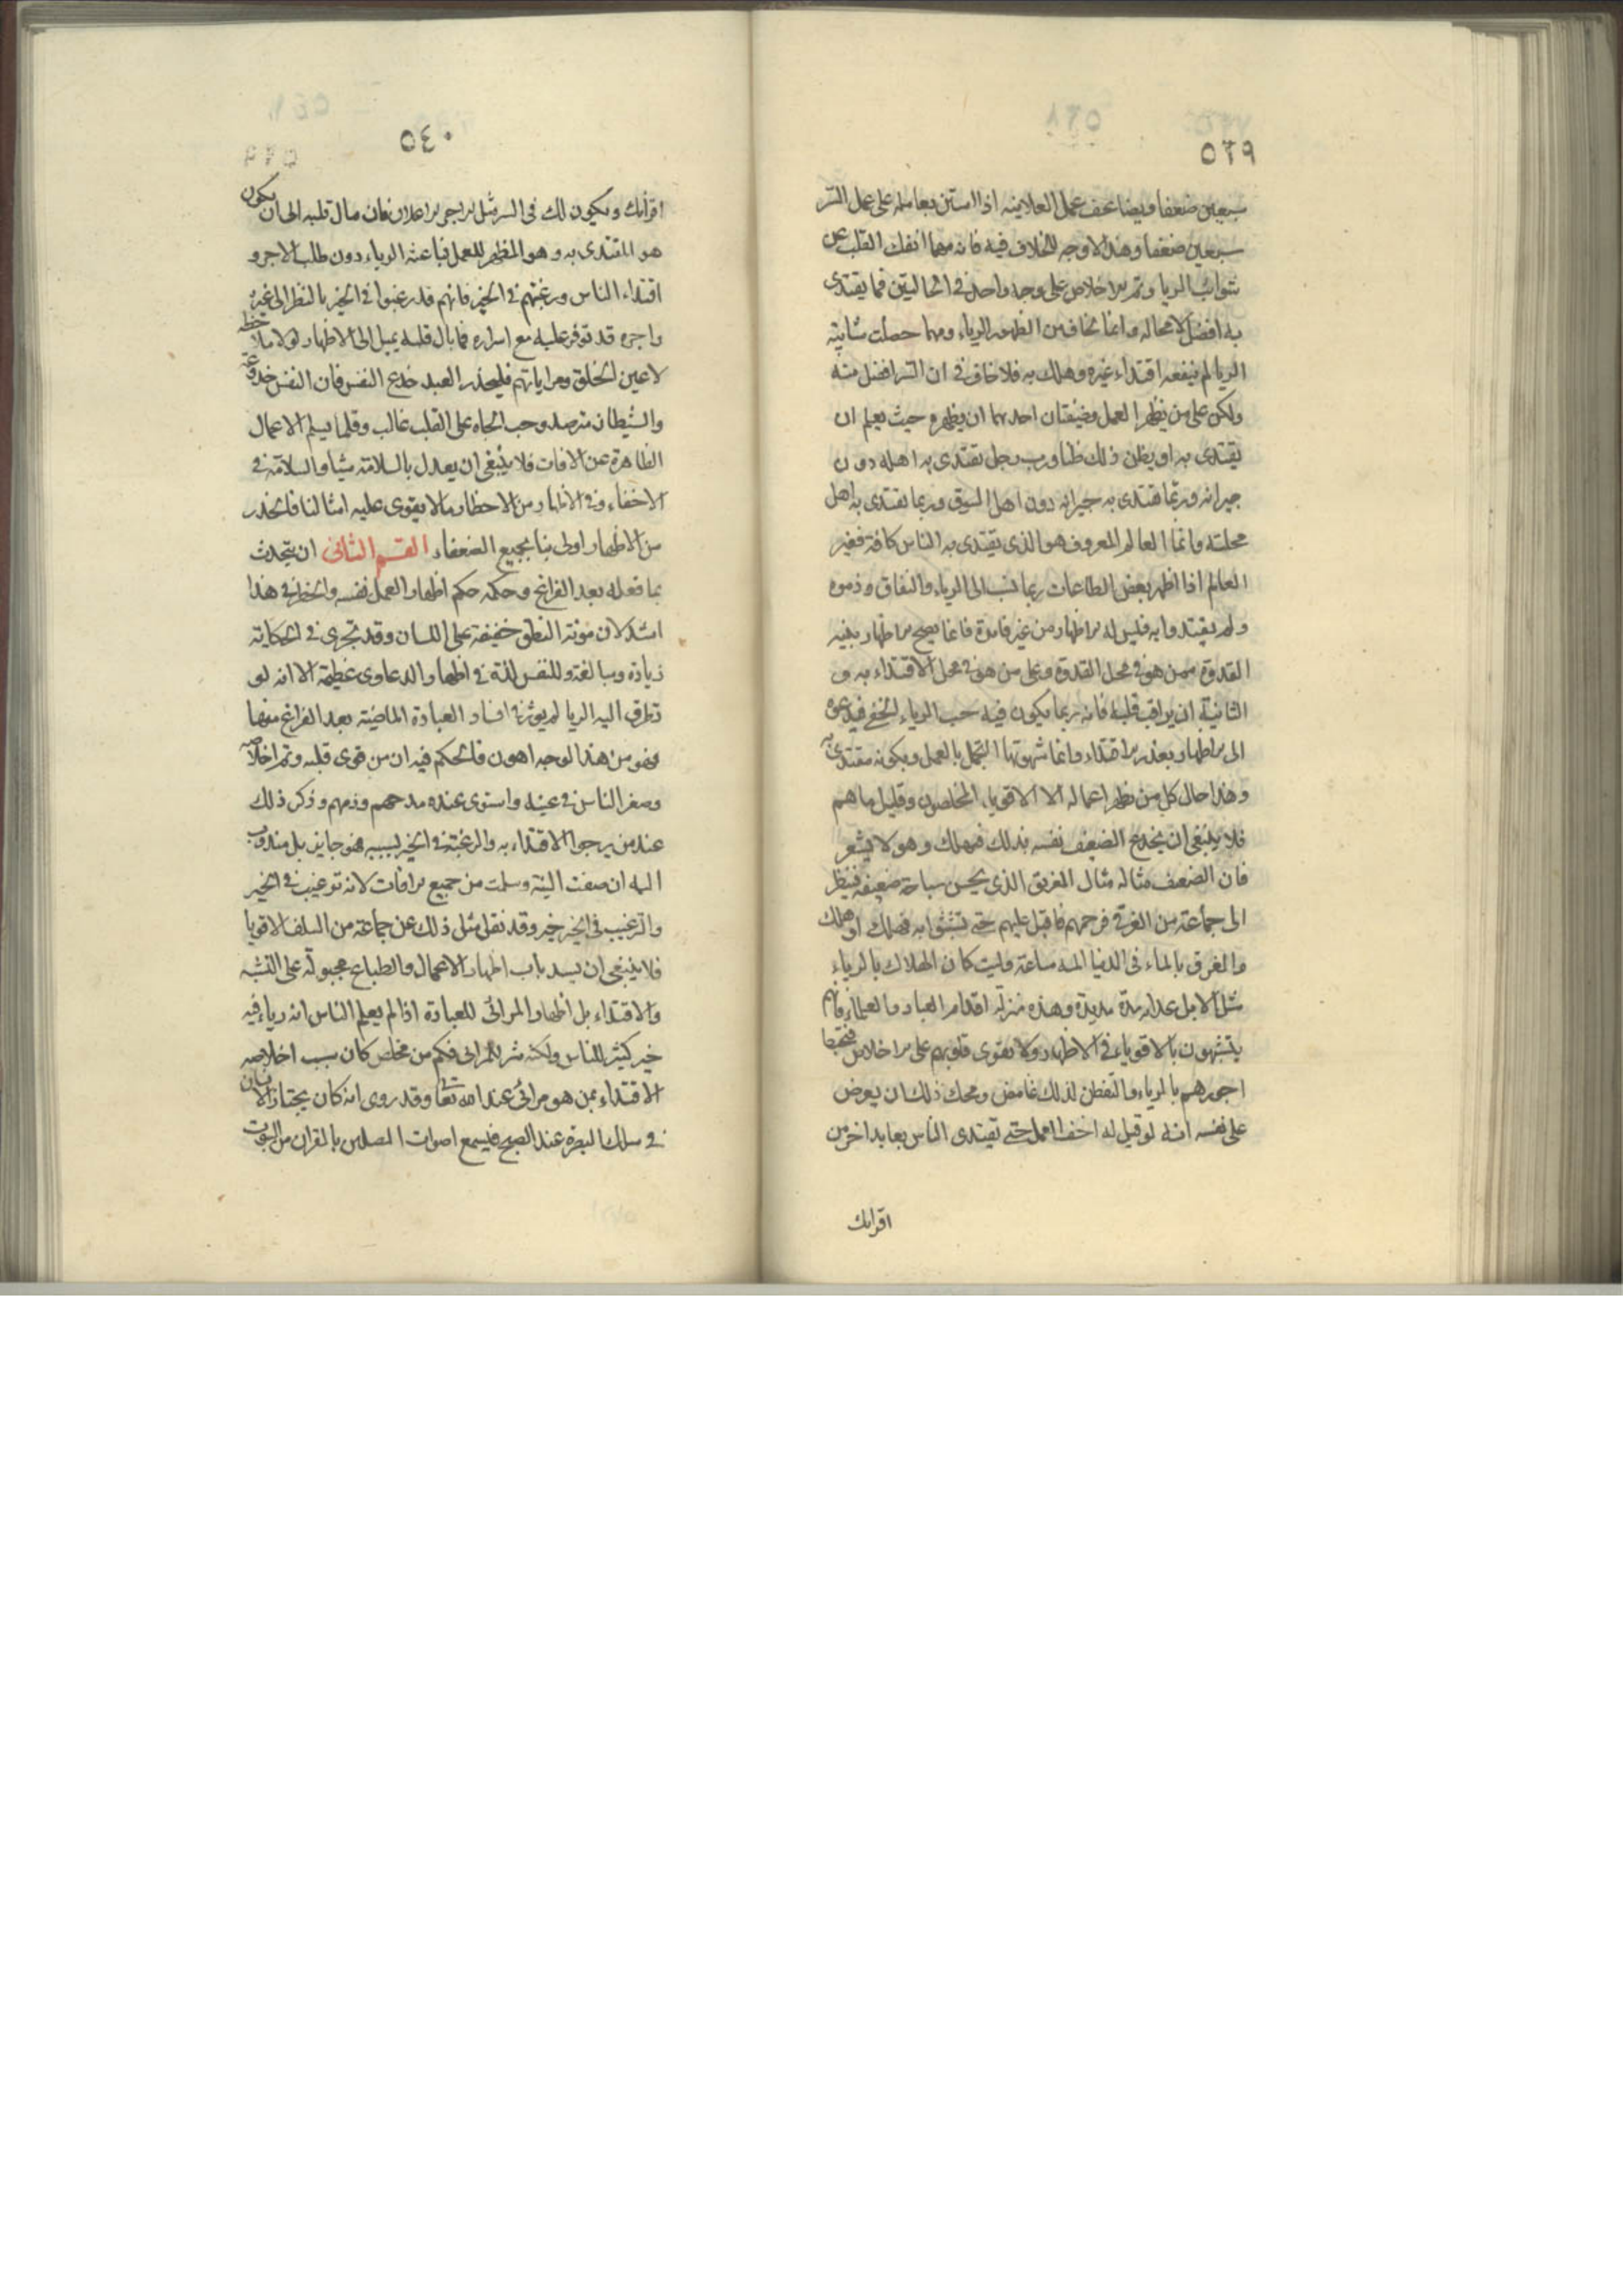 ٥٣٩
سبعين ضعفا ويضاعف عمل العلانية اذا استن بعامله على عمل السر
سبعين ضعفا وهذا لا وجه للخلاف فيه فانه مهما انفك القلب عن
شوائب الريا وتم الاخلاص على وجه واحد في الحالتين فما يقتدى
به افضل لا محالة وانما نخاف من الظهور الرياء ومهما حصلت شايبة
الريا لم ينفعه اقتداء غيره وهلك به فلا خلاف في ان السر افضل منه
ولكن على من يظهر العمل وضيفتان احدهما ان يظهره حيث يعلم ان
يقتدى به او يظن ذلك ظنا ورب رجل يقتدى به اهله دون
جيرانه وربما يقتدى به جيرانه دون اهل السوق وربما يقتدى به اهل
محلته وانما العالم المعروف هو الذي يقتدى به الناس كافة فغير
العالم اذا اظهر بعض الطاعات ربما نسب الى الرياء والنفاق وذموه
ولم يقتدوا به فليس له الاظهار من غير فائدة فانما يصح الاظهار بنية
القدوة ممن هو في محل القدوة وعلى من هو في محل الاقتداء به و
الثانية ان يراقب قلبه فانه ربما يكون فيه حب الرياء الخفي فيدعوه
الى الاظهار بعذر الاقتداء وانما شهوتها التجمل بالعمل وبكونه مقتدى به
وهذا حال كل من يظهر اعماله الا الاقوياء المخلصون وقليل ما هم
فلا ينبغي ان يخدع الضعيف نفسه بذلك فيهلك وهو لا يشعر
فان الضعيف مثاله مثال الغريق الذي يحسن سباحة ضعيفة فينظر
الى جماعة من الغرقى فرحمهم فاقبل عليهم حتى تشبثوا به فهلك او هلك
والغرق بالماء في الدنيا المه ساعة وليت كان الهلاك بالرياء
مثله لا بل عذابه مدة مديدة وهذه منزلة اقدام العباد والعلماء فانهم
يتشبهون بالاقوياء في الاظهار ولا يقوى قلوبهم على الاخلاص فتحبط
اجورهم بالرياء والتفطن لذلك غامض ومحك ذلك ان يعرض
على نفسه انه لو قيل له اخف العمل حتى يقتدى الناس بعابد اخر من
اقرانك
٥٤٠
اقرانك ويكون لك في السر مثل الاجر الاعلان فان مال قلبه الى ان يكون
هو المقتدى به وهو المظهر للعمل فباعثه الرياء دون طلب الاجر و
اقتداء الناس ورغبتهم في الخير فانهم قد رغبوا في الخير بالنظر الى غيره
واجره قد توفر عليه مع اسراره فما بال قلبه يميل الى الاظهار لولا ملاحظه
لاعين الخلق ومراياتهم فليحذر العبد خدع النفس فان النفس خدوعة
والشيطان مترصد وحب الجاه على القلب غالب وقلما يسلم الاعمال
الظاهرة عن الافات فلا ينبغي ان يعدل بالسلامة شيئا والسلامة في
الاخفاء وفي الاظهار من الاخطار ما لا يقوى عليه امثالنا فالحذر
من الاظهار اولى بنا بجميع الضعفاء القسم الثاني ان يتحدث
بما فعله بعد الفراغ وحكمه حكم اظهار العمل نفسه والخطر في هذا
اشد لان مونة النطق خفيفة على اللسان وقد تجرى في الحكاية
زيادة ومبالغة وللنفس لذة في اظهار الدعاوى عظيمة الا انه لو
تطرق اليه الريا لم يوثر في افساد العبادة الماضية بعد الفراغ منها
فهو من هذا الوجه اهون فالحكم فيه ان من قوى قلبه وتم اخلاصه
وصغر الناس في عينه واستوى عنده مدحهم وذمهم وذكر ذلك
عند من يرجو الاقتداء به والرغبة في الخير بسببه فهو جايز بل مندوب
اليه ان صفت النية وسلمت من جميع الافات لانه ترغيب في الخير
والترغيب في الخير خير وقد نقل مثل ذلك عن جماعة من السلف الاقويا
فلا ينبغي ان يسد باب اظهار الاعمال والطباع مجبولة على التشبه
والاقتداء بل اظهار المرائي للعبادة اذا لم يعلم الناس انه رياء فيه
خير كثير للناس ولكنه شر للمرائي فكم من مخلص كان سبب اخلاصه
الاقتداء بمن هو مرائي عند الله تعا وقد روى انه كان يجتاز الانسان
في سلك البصرة عند الصبح فيسمع اصوات المصلين بالقران من البيوت